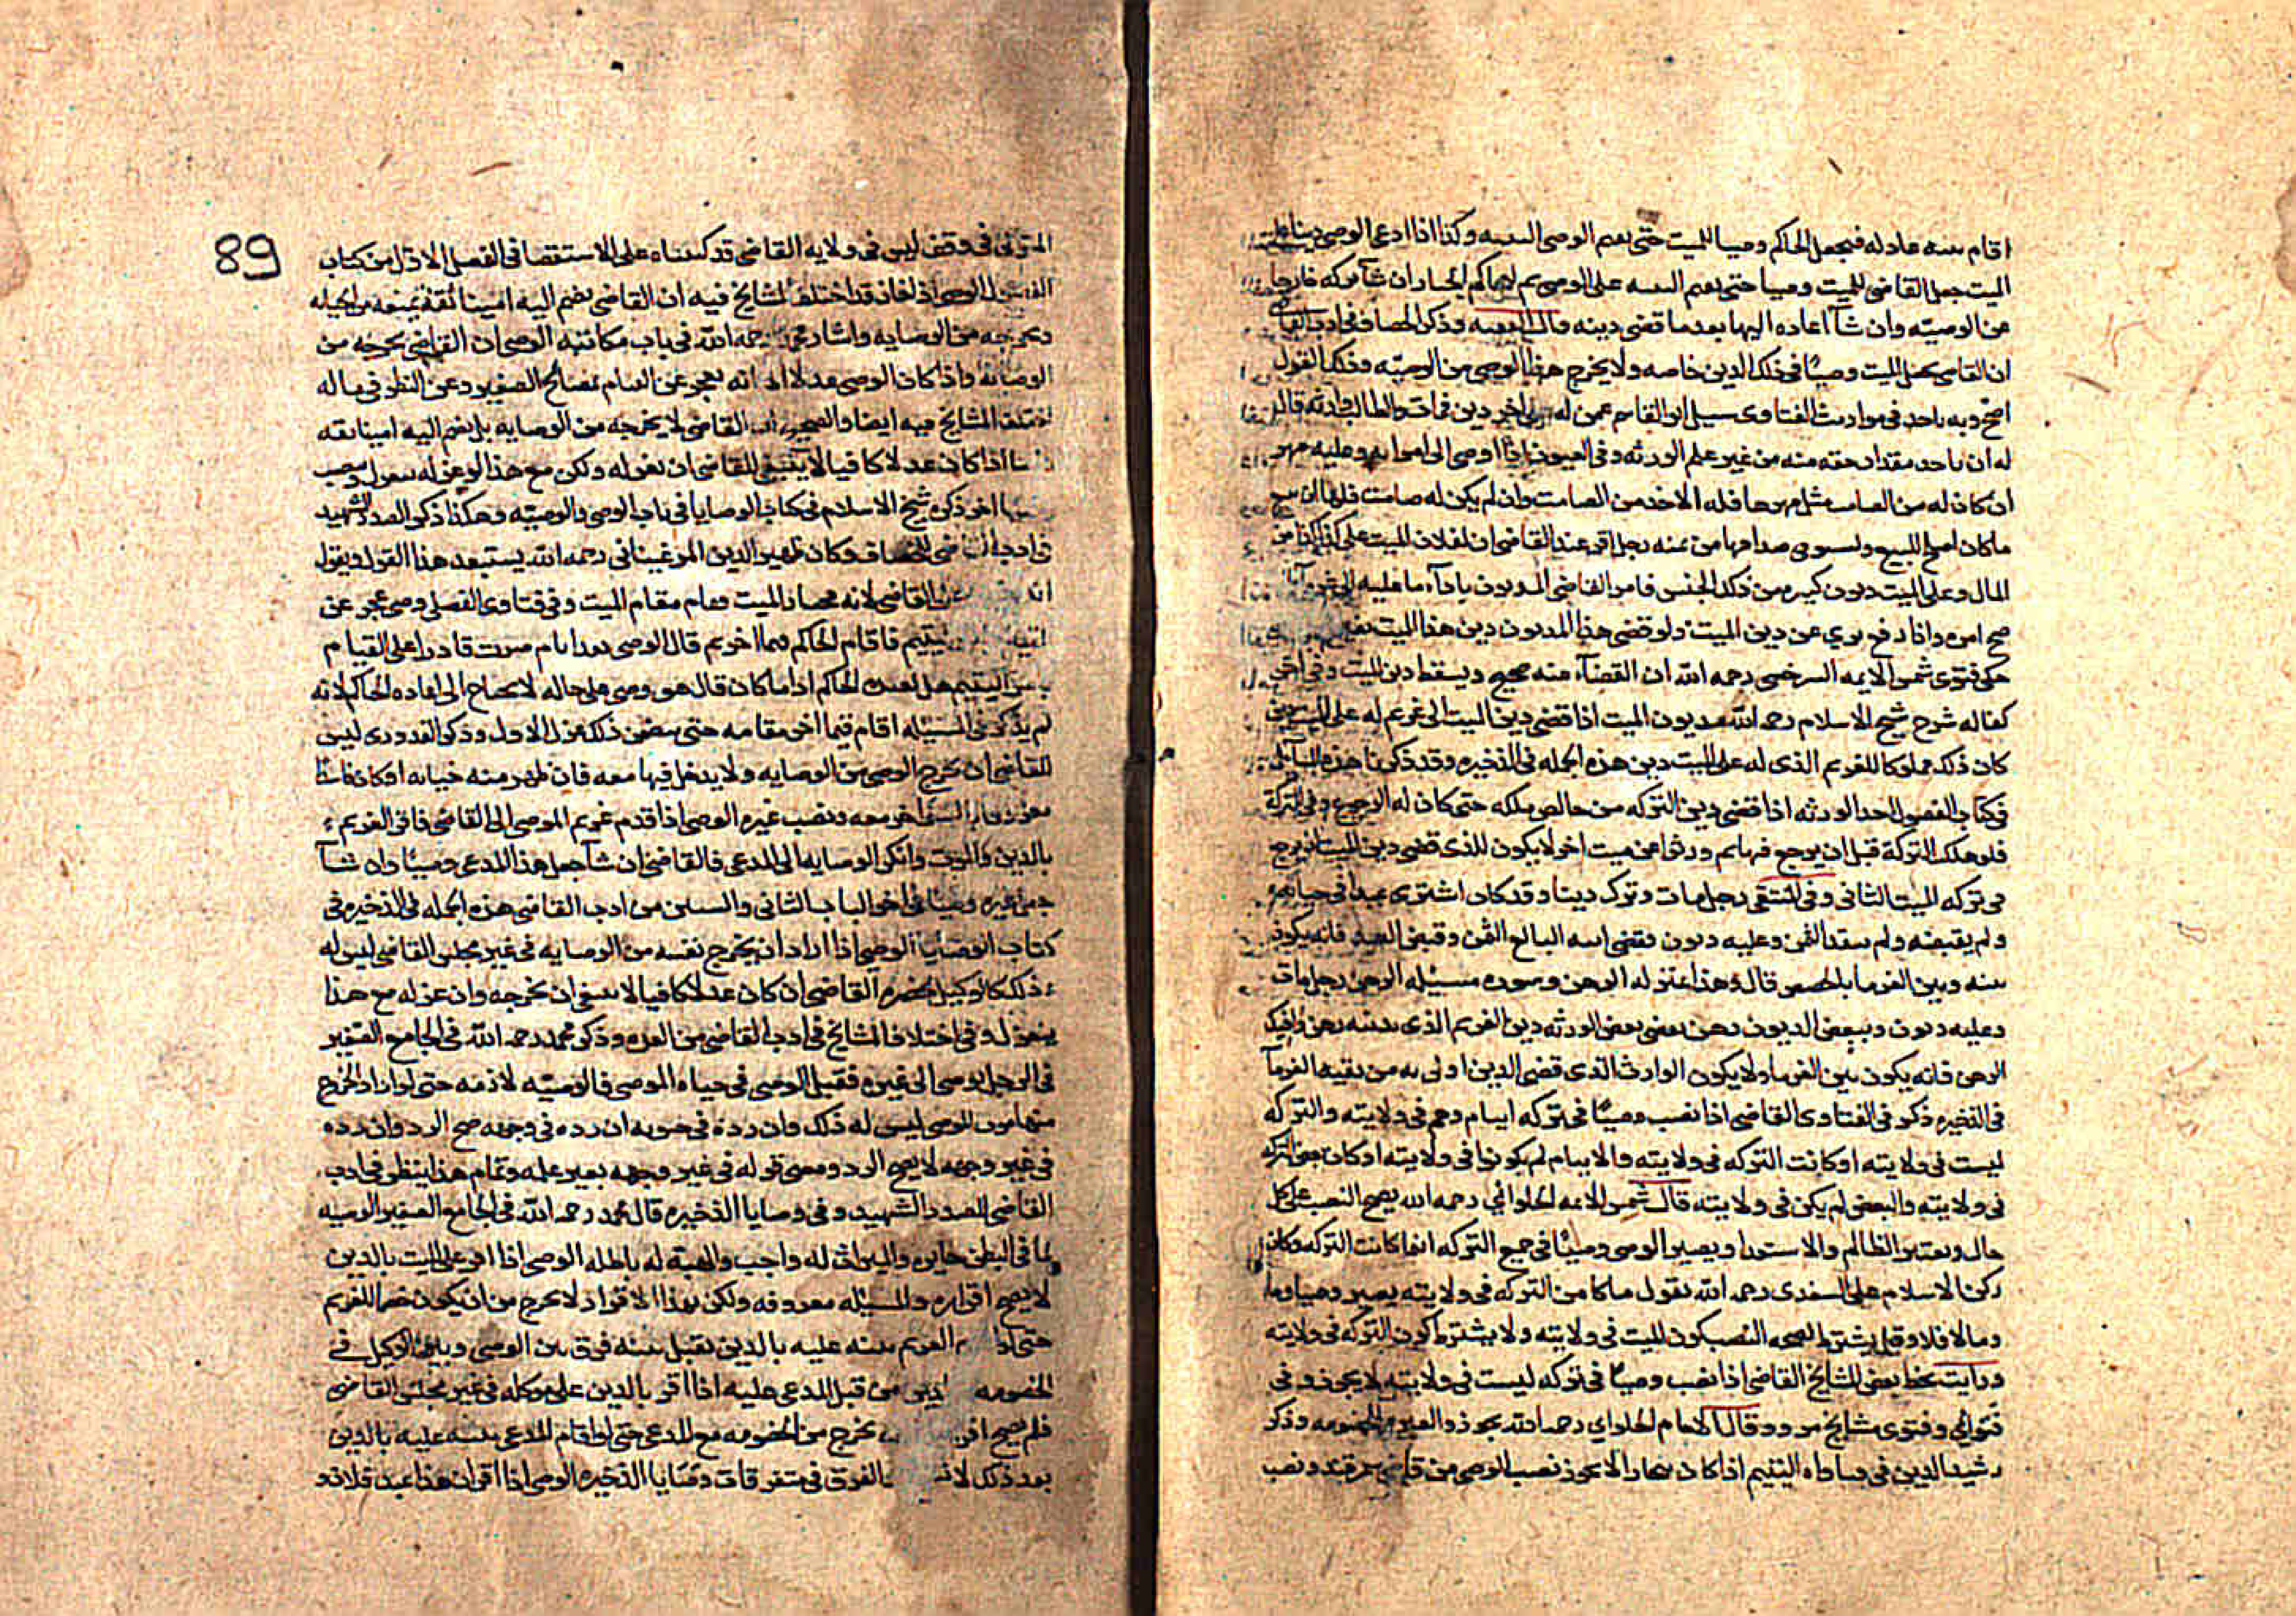 اقام بينه عادله فيجعل الحاكم وصيا للميت حتى يقيم الوصى البينه وكذا اذا ادعى الوصى دينا على
الميت جعل القاضى للميت وصيا حتى يقيم البينه على الوصى ثم الحاكم بالخيار ان شاء تركه خارجا
من الوصيّه وان شاء اعاده اليها بعد ما قضى دينه وذكر الخصاف فى ادب القاضى
ان القاضى يجعل للميت وصيّا فى ذلك الدين خاصه ولا يخرج هذا الوصى من الوصيّه وذلك القول
اصح وبه ناخذ فى مواريث الفتاوى سئل ابو القاسم عمن له على اخر دين فمات والطالب وارثه قال
له ان ياخذ مقدار حقه منه من غير علم الورثه وفى العيون اذا اوصى الى امراته وعليه مهر
ان كان له من الصامت مثل مهرها فله الاخذ من الصامت وان لم يكن له صامت فلها ان تبيع
ما كان اصلح للبيع وتستوفى صداقها من ثمنه رجل اقر عند القاضى ان لفلان الميت على كذا كذا من
المال وعلى الميت ديون كثيره من ذلك الجنس فامر القاضى المديون باداء ما عليه
صح امره واذا دفع برئ عن دين الميت ولو قضى هذا المديون دين هذا الميت
حكى فتوى شمس الايمه السرخسى رحمه الله ان القضاء منه صحيح ويسقط دين الميت وفى اخر
كفاله شرح شيخ الاسلام رحمه الله مديون الميت اذا قضى دين الميت الى غريم له على الميت
كان ذلك مملوكا للغريم الذى له على الميت دين هذه الجمله فى الذخيره وقد ذكرنا هذه المسائل
فى كتاب الفصول احد الورثه اذا قضى دين التركه من خالص ملكه حتى كان له الرجوع فى التركة
فلو هلك التركة قبل ان يرجع فيها ثم ورثوا من ميت اخر لا يكون للذى قضى دين الميت ان يرجع
فى تركه الميت الثانى وفى المنتقى رجل مات وترك دينا وقد كان اشترى عبدا فى حياته
ولم يقبضه ولم ينقد الثمن وعليه ديون فقضى ابنه البائع الثمن وقبض العبد فانه يكون
بينه وبين الغرما بالحصص قال وهذا بمنزله الرهن وصوره مسئله الرهن رجل مات
وعليه ديون وببعض الديون رهن فقضى بعض الورثه دين الغريم الذى بيديه رهن وافتك
الرهن فانه يكون بين الغرما ولا يكون الوارث الذى قضى الدين اولى به من بقيه الغرماء
فى الذخيره ذكر فى الفتاوى القاضى اذا نصب وصيّا فى تركه ايتام وهم فى ولايته والتركه
ليست فى ولايته او كانت التركه فى ولايته والايتام لم يكونوا فى ولايته او كان بعض التركه
فى ولايته والبعض لم يكن فى ولايته قال شمس الائمه الحلوائي رحمه الله يصح النصب على كل
حال ويعتبر التظالم والاستعدا ويصير الوصى وصيّا فى جميع التركه اينما كانت التركه وكان
ركن الاسلام على السغدى رحمه الله يقول ما كا من التركه فى ولايته يصير وصيا وما
وما لا فلا وقيل يشترط لصحه النصب كون الميت فى ولايته ولا يشترط كون التركه فى ولايته
ورايت بخط بعض المشايخ القاضى اذا نصب وصيّا فى تركه ليست فى ولايته لا يجوز وفى
فتوائي وفتوى مشايخ مرو وقال الامام الحلواي رحمه الله يجوز والخصومه وذكر
رشيد الدين فى فتاواه اليتيم اذا كان ببخارا لا يجوز نصب الوصى من قاضى سمرقند ونصب
89
المتولى فى وقف ليس فى ولايه القاضى قد كتبناه على الاستقصا فى الفصل الاول من كتاب
الفصول الوصى اذا خان قد اختلف المشايخ فيه ان القاضى يضم اليه امينا ثقة يمنعه من الحيله
يخرجه من الوصايه واشار محمد رحمه الله فى باب مكاتبه الوصى ان القاضى يخرجه من
الوصايه واذا كان الوصى عدلا الا انه يعجز عن القيام بمصالح الصغير وعن النظر فى ماله
اختلف المشايخ فيه ايضا والصحيح ان القاضى لا يخرجه من الوصايه بل يضم اليه امينا ثقه
اما اذا كان عدلا كافيا لا ينبغى للقاضى ان يعزله ولكن مع هذا لو عزله ينعزل
اخر ذكره شيخ الاسلام فى كتاب الوصايا فى باب الوصى والوصيّه وهكذا ذكر الصدر الشهيد
فى ادب القاضى للخصاف وكان ظهير الدين المرغينانى رحمه الله يستبعد هذا القول ويقول
القاضى لانه مختار الميت وقام مقام الميت وفى فتاوى الفضلى وصى عجز عن
اليتيم فاقام الحاكم قيما اخر ثم قال الوصى بعد ايام صرت قادرا على القيام
اليتيم هل يعيده الحاكم اذا ما كان قال هو وصى على حاله لا يحتاج الى اعاده الحاكم لانه
لم يذكر فى المسئله اقام قيما اخر مقامه حتى يتضمن ذلك عزل الاول وذكر القدورى ليس
للقاضى ان يخرج الوصى من الوصايه ولا يدخل فيها معه فان ظهر منه خيانه او كان فاسقا
ونصب غيره الوصى اذا قدم غريم الموصى الى القاضى فاقر الغريم
بالدين والموت وانكر الوصايه الى المدعى فالقاضى ان شا جعل هذا المدعى وصيّا وان شآ
جعل غيره وصيّا فى اخر الباب الثانى والستين من ادب القاضى هذه الجمله فى الذخيره فى
كتاب الوصايا الوصى اذا اراد ان يخرج نفسه من الوصايه فى غير مجلس القاضى ليس له
ذلك كالوكيل بحضرة القاضى ان كان عدلا كافيا لا ينبغى ان يخرجه وان عزله مع هذا
ينعزل وفى اختلاف المشايخ فى ادب القاضى من العده وذكر محمد رحمه الله فى الجامع الصغير
فى الرجل يوصى الى غيره فقبل الوصى فى حياه الموصى فالوصيّه لازمه حتى لو اراد الخروج
منها موت الموصى ليس له ذلك وان رده فى حيوته ان رده فى وجهه صح الرد وان رده
فى غير وجهه لا يصح الرد ومعنى قوله فى غير وجهه بغير علمه وتمام هذا ينظر فى ادب
القاضى للصدر الشهيد وفى وصايا الذخيره قال محمد رحمه الله فى الجامع الصغير الوصيه
لما فى البطن جايزه والميراث له واجب والهبة له باطله الوصى اذا اقر على الميت بالدين
لا يصح اقراره والمسئله معروفه ولكن بهذا الاقرار لا يخرج من ان يكون خصما للغريم
حتى اذا الغريم بينه عليه بالدين تقبل بينته فرق بين الوصى وبين الوكيل فى
الخصومه من قبل المدعى عليه اذا اقر بالدين على موكله فى غير مجلس القاضى
فلم يصح يخرج من الخصومه مع المدعى حتى لو اقام المدعى بينه عليه بالدين
بعد ذلك لا الفرق فى متفرقات وصايا الذخيره الوصى اذا اقر ان هذا عبد فلان